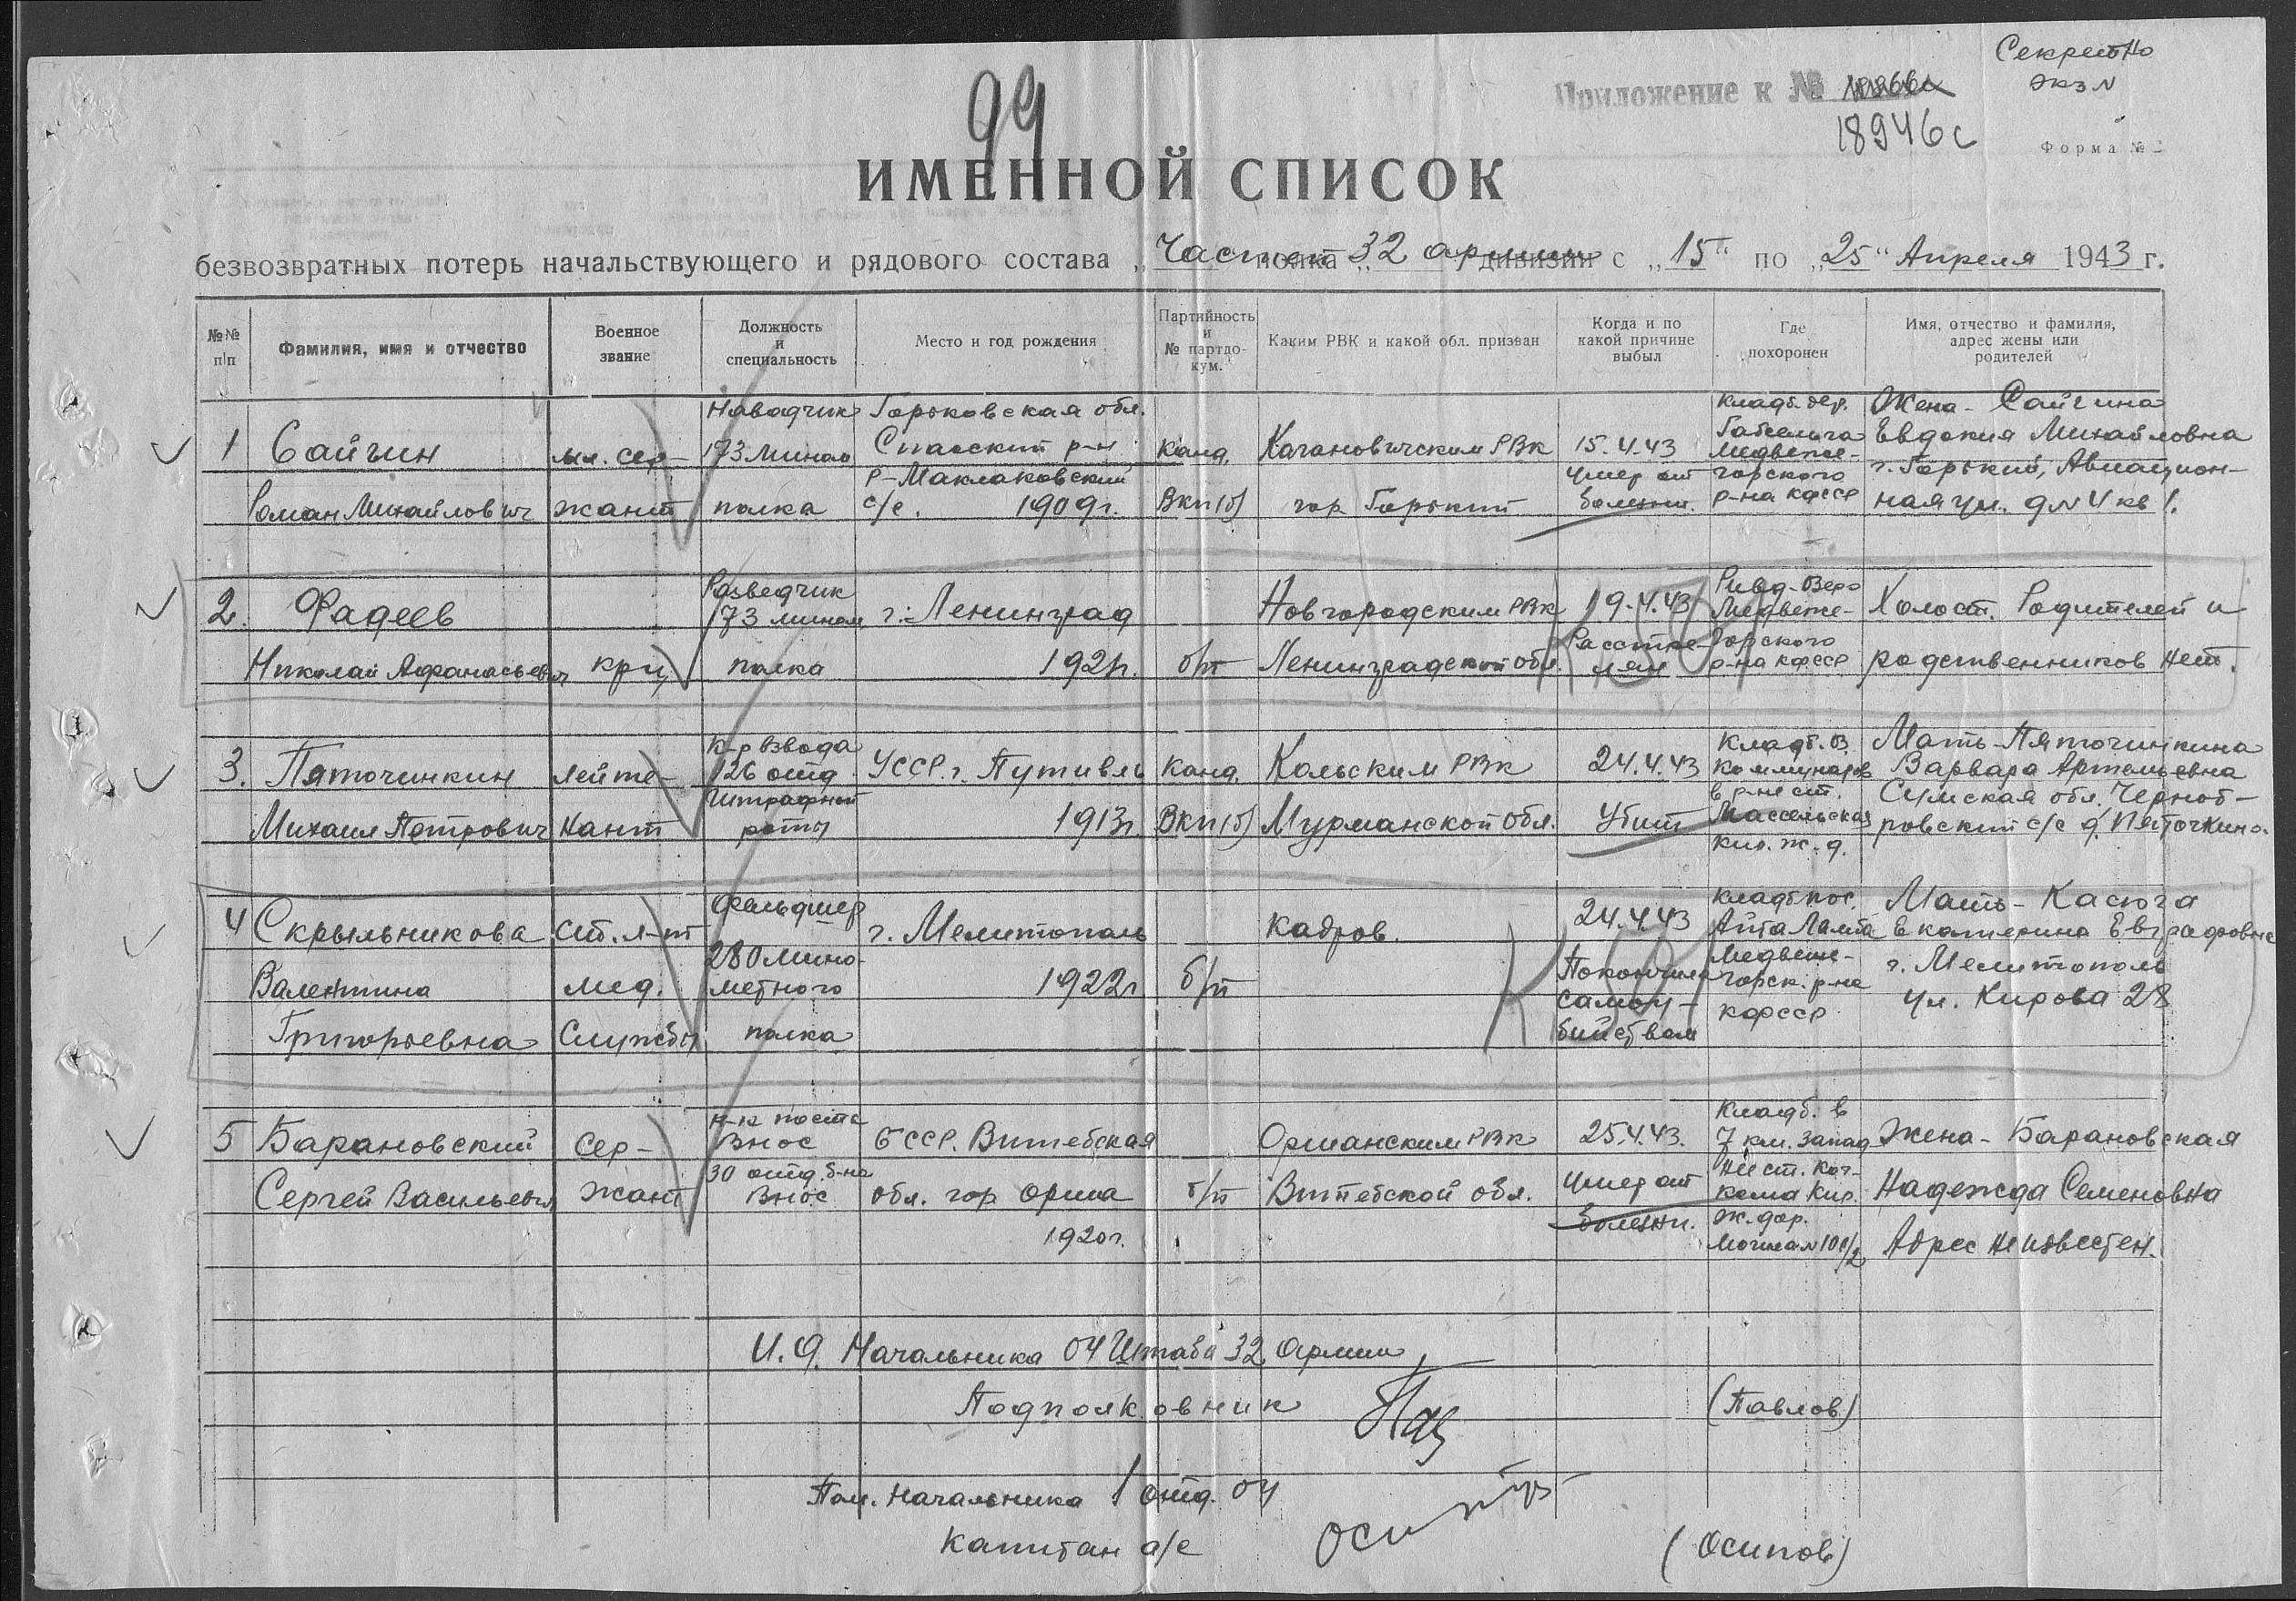 Секретно
экз N
Приложение к №
18946с
Форма №
99
ИМЕННОЙ СПИСОК
безвозвратных потерь начальствующего и рядового состава „Частей полка „ 32 армии дивизии с „15" по „25" Апреля 1943 г.
№№ п/п
Фамилия, имя и отчество
Военное звание
Должность и специальность
Место и год рождения
Партийность и № партдокум.
Каким РВК и какой обл. призван
Когда и по какой причине выбыл
Где похоронен
Имя, отчество и фамилия, адрес жены или родителей
1
Сайгин
Роман Михайлович
мл. сер-
жант
Наводчик
173 мином
полка
Горьковская обл.
Спасский р-н
р-Маклаковский
с/с. 1909г.
канд.
ВКП(б)
Кагановичским РВК
гор Горький
15.4.43
умер от
болезни.
Кладб. дер.
Габсельга
Медвеже-
горского
р-на КФССР
Жена - Сайгина
Евдокия Михайловна
г. Горький, Авиацион-
ная ул. д N 4 кв 1.
2.
Фадеев
Николай Афанасьевич
кр-ц
Разведчик
173 мином
полка
г. Ленинград
1921г.
б/п
Новгородским РВК
Ленинградской обл.
19.4.43
Расстре-
лян
Медвеже-
горского
р-на КФССР
Холост. Родителей и
родственников нет.
3.
Пяточинкин
Михаил Петрович
Лейте-
нант
К-р взвода
126 отд
Штрафной
роты
УССР г. Путивль
1913г.
Канд.
ВКП(б)
Кольским РВК
Мурманской обл.
24.4.43
Убит
Кладб. в.
Коммунаров
в р-не ст.
Массельская
Кир. ж. д.
Мать Пяточинкина
Варвара Артемьевна
Сумская обл. Черноб-
ровский с/с д. Пяточкино.
4
Скрыльникова
Валентина
Григорьевна
Ст. л-т
мед.
Службы
Фельдшер
280 мино-
метного
полка
г. Мелитополь
1922г
б/п
Кадров.
24.4.43
Покончила
самоу-
бийством
Кладб пос.
Айта Ламба
Медвеже-
горск. р-на
КФССР
Мать - Касюга
Екатерина Евграфовна
г. Мелитополь
ул. Кирова 28
5
Барановский
Сергей Васильевич
Сер-
жант
Н-к поста
ВНОС
30 отд. б-на
ВНОС
БССР. Витебская
обл. гор Орша
1920г.
б/п
Оршанским РВК
Витебской обл.
25.4.43.
Умер от
болезни.
Кладб. в
7 км. Запад
Нее ст. Коч-
кома Кир.
ж. дор.
Могила N 101/2
Жена - Барановская
Надежда Семеновна
Адрес неизвестен.
И. О. Начальника ОУ Штаба 32 Армии
Подполковник
(Павлов)
Пом. Начальника 1 отд. ОУ
Капитан а/с
Осипов
(Осипов)